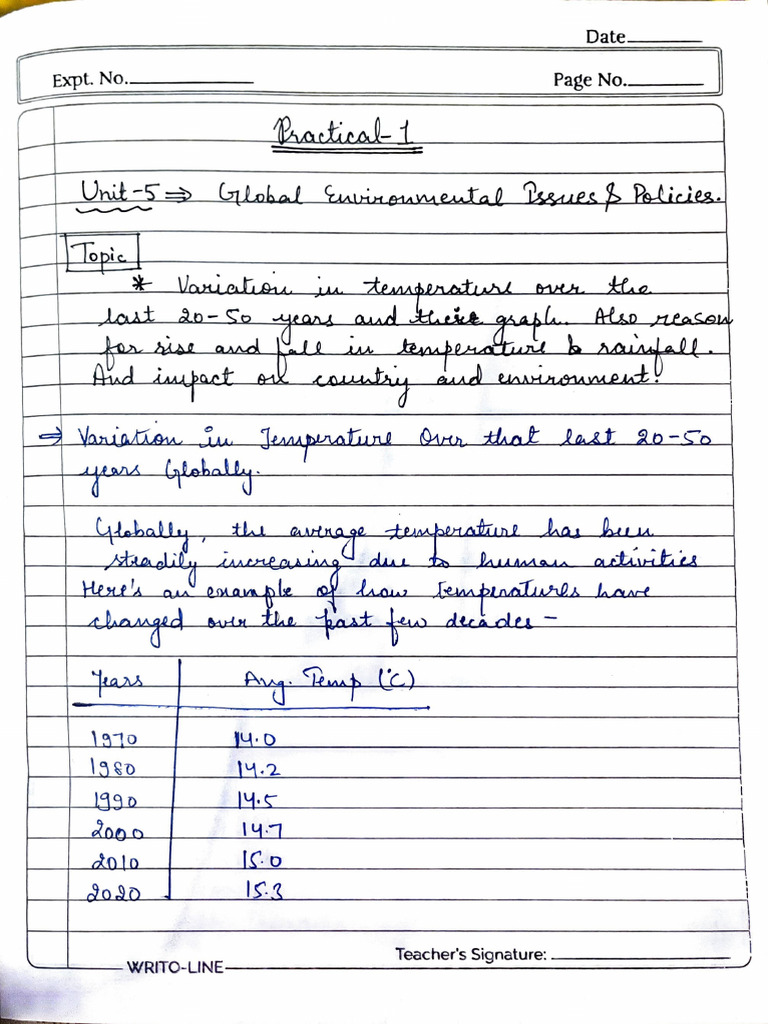 Date
Expt. No.
Page No.
Practical-1
Unit-5 ⇒ Global Environmental Issues & Policies.
Topic
* Variation in temperature over the
last 20-50 years and their graph. Also reason
for rise and fall in temperature & rainfall.
And impact on country and environment.
⇒ Variation in Temperature Over that last 20-50
years Globally.
Globally, the average temperature has been
steadily increasing due to human activities
Here's an example of how temperatures have
changed over the past few decades -
Years Avg. Temp (°C)
1970 14.0
1980 14.2
1990 14.5
2000 14.7
2010 15.0
2020 15.3
Teacher's Signature:
WRITO-LINE